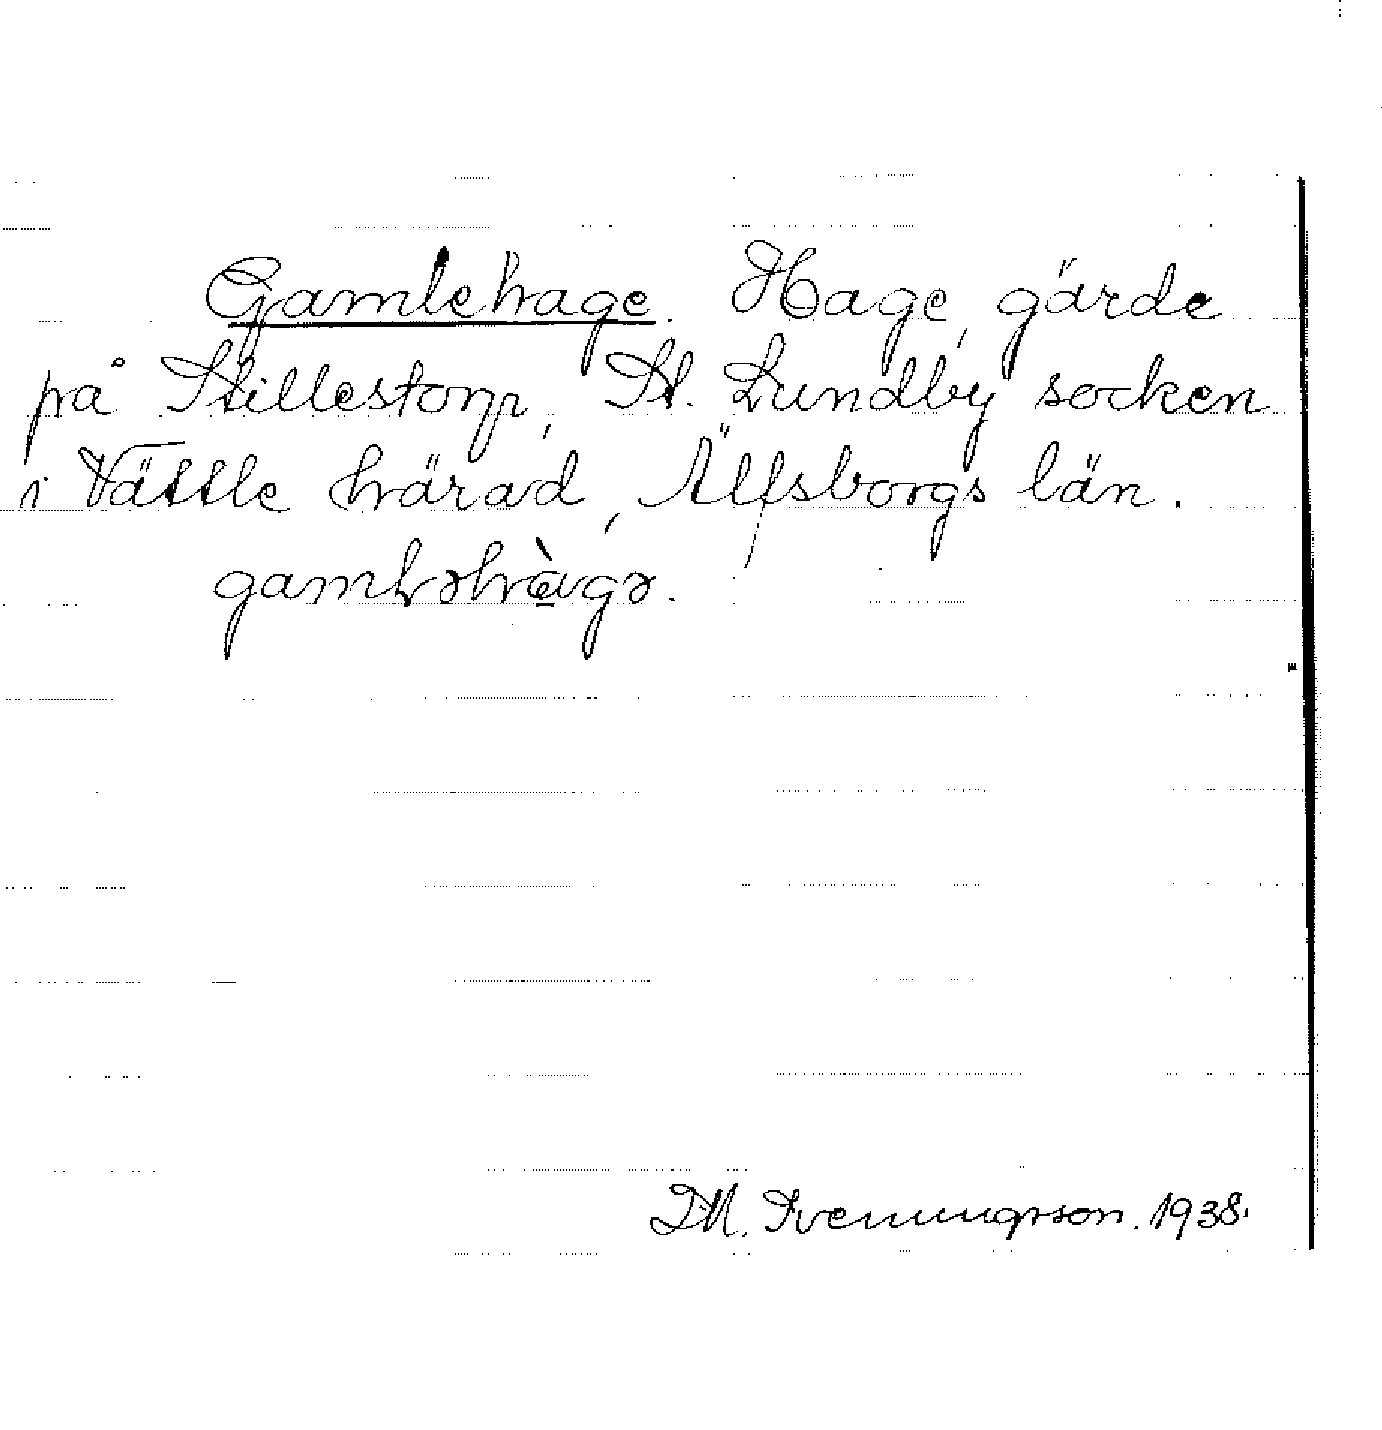 Gamlehage. Hage, gärde
på Stillestorp, St. Lundby socken
i Vättle härad, Älfsborgs län.
gambləhàgə.
M. Svenungsson. 1938.